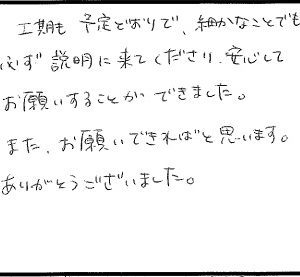 工期も 予定どおりで、細かなことでも
必ず 説明に来てくださり、安心して
お願いすることができました。
また、お願いできればと思います。
ありがとうございました。